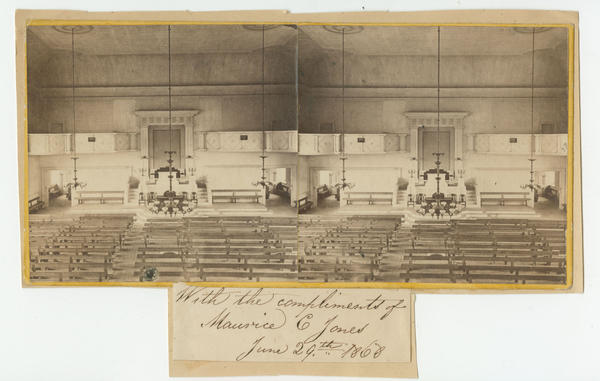 With the compliments of
Maurice C Jones
June 29th 1868